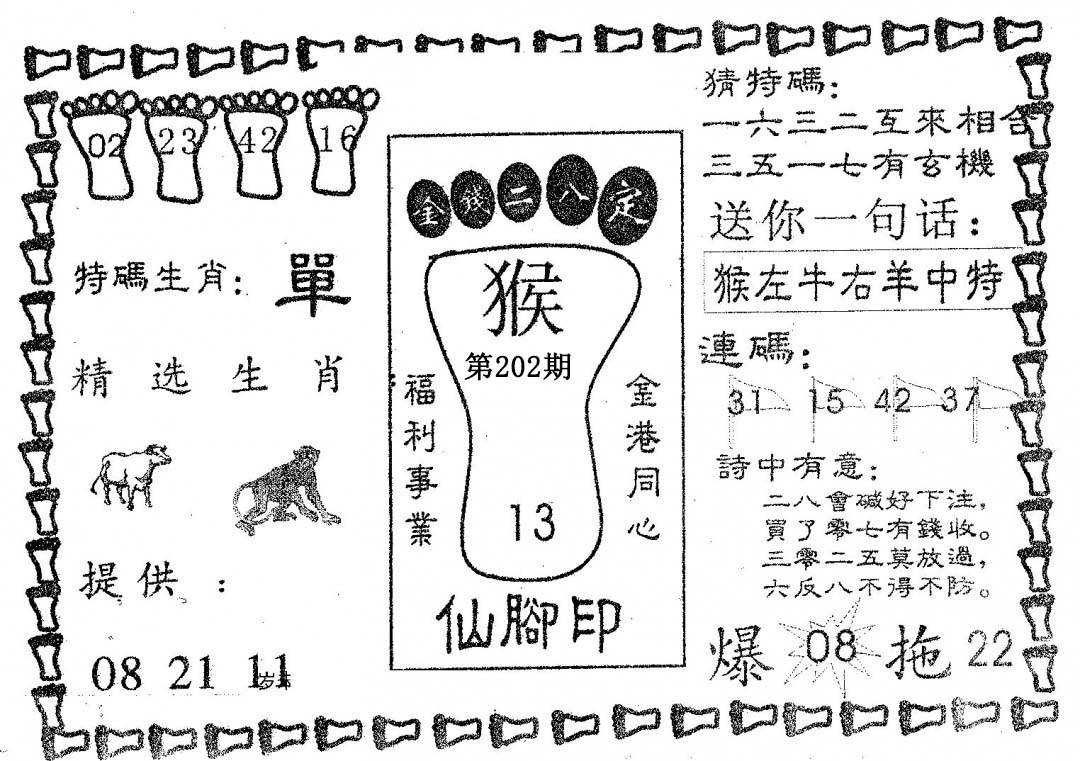 02 23 42 16
特碼生肖：單
精选生肖
提供：
08 21 11
金錢二八定
猴
第202期
福利事業
金港同心
13
仙腳印
猜特碼：
一六三二互來相合
三五一七有玄機
送你一句话：
猴左牛右羊中特
連碼：
31 15 42 37
詩中有意：
二八會碱好下注，
買了零七有錢收。
三零二五莫放過，
六反八不得不防。
爆 08 拖 22